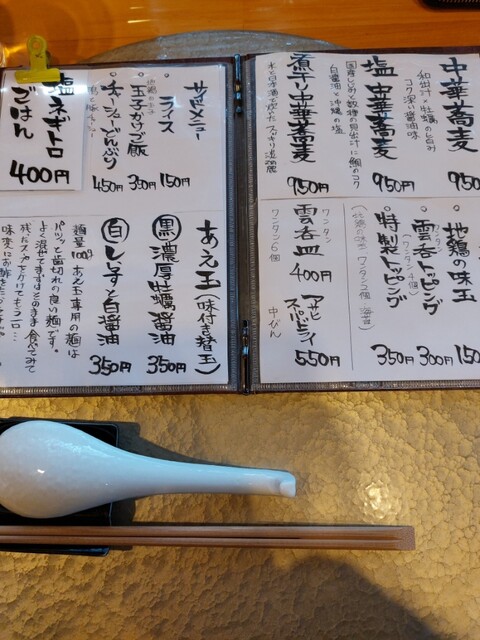 中華蕎麦
和出汁×牡蠣の旨み
コク深い醤油味
950
塩中華蕎麦
国産しめ、数種の貝出汁に鯛のコク
白醤油と沖縄の塩
950円
煮干中華蕎麦
水と日本酒で炊いた スッキリ淡麗
950円
地鶏の味玉
150
雲呑トッピング
(ワンタン4個)
300円
特製トッピング
(地鶏の味玉 ワンタン2個 海苔)
350円
雲呑皿
ワンタン
ワンタン6個
400円
アサヒスーパードライ
中びん
550円
サイドメニュー
ライス
150円
地鶏たまご
玉子かけご飯
350円
チャーシューどんぶり
450円
塩ネギトロごはん
400円
あえ玉(味付き替玉)
黒 濃厚牡蠣醤油
350円
白 しじみと白醤油
350円
麺量100g あえ玉専用の麺は
パツッと歯切れの良い麺です。
よく混ぜてまずはそのまま食べてみて
残ったスープをかけてもヨーロー…